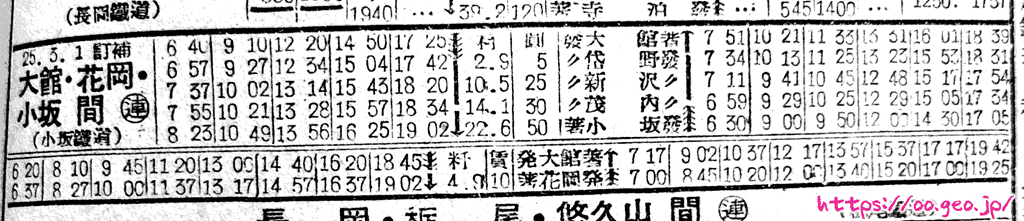 (長岡鐵道)
1940 … 39.2 120
545 1400 …
25. 3. 1 訂補
大館・花岡・
小坂 間 ㊥
(小坂鐵道)
6 40 9 10 12 20 14 50 17 25 粁 圓 發大 館着 7 51 10 21 11 33 13 51 16 01 18 39
6 57 9 27 12 34 15 04 17 42 2.9 5 〃岱 野發 7 34 10 13 11 25 13 23 15 53 18 31
7 37 10 02 13 14 15 43 18 20 10.5 25 〃新 沢〃 7 11 9 41 10 45 12 48 15 17 17 54
7 55 10 21 13 28 15 57 18 34 14.1 30 〃茂 内〃 6 59 9 29 10 25 12 29 15 05 17 34
8 23 10 49 13 56 16 25 19 02 22.6 50 着小 坂發 6 30 9 00 9 50 12 00 14 30 17 05
6 20 8 10 9 45 11 20 13 00 14 40 16 20 18 45 粁 賃 発大館着 7 17 9 02 10 37 12 17 13 57 15 37 17 17 19 42
6 37 8 27 10 00 11 37 13 17 14 57 16 37 19 02 4.9 10 着花岡発 7 00 8 45 10 20 12 00 13 40 15 20 17 00 19 25
長 岡・栃 尾・悠久山 間
https://oo.geo.jp/